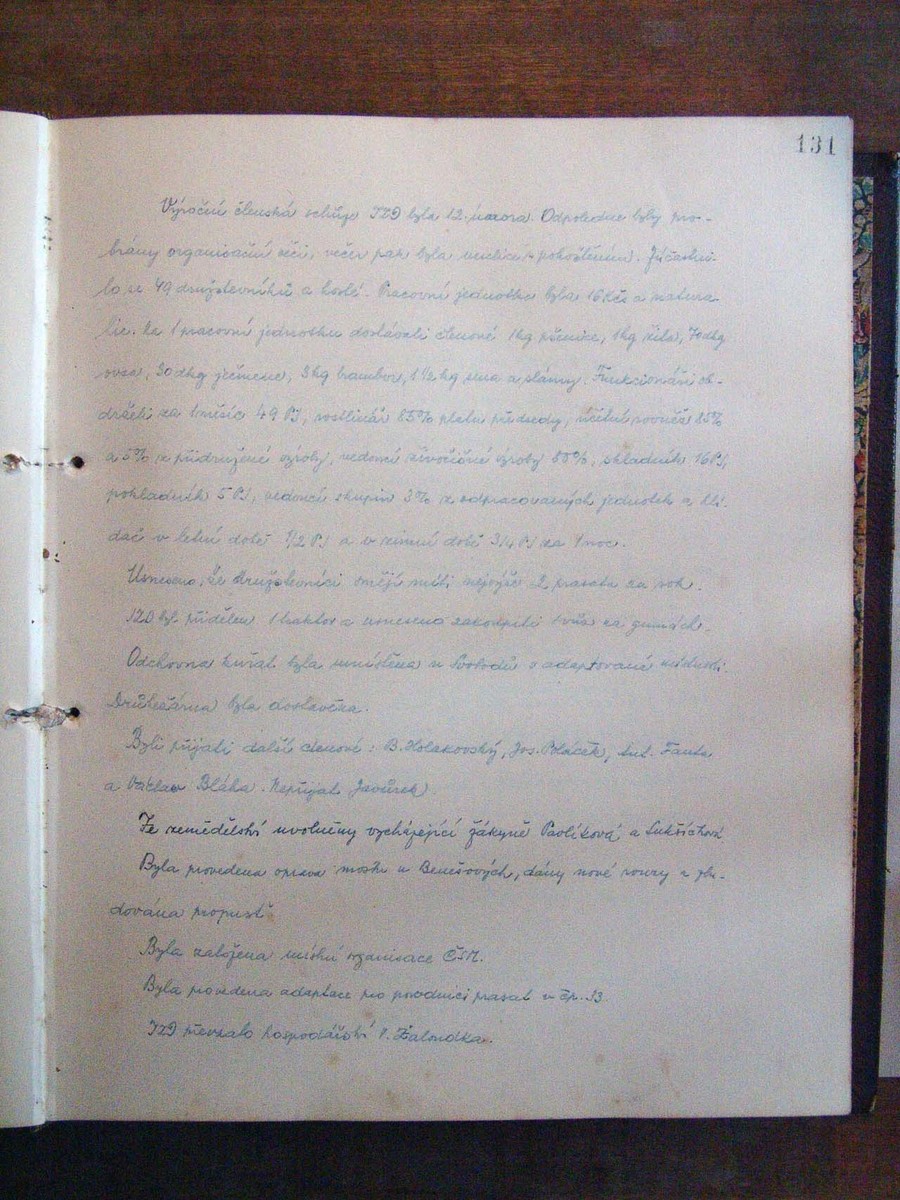 131
Výroční členská schůze JZD byla 12. února. Odpoledne byly pro-
brány organisační věci, večer pak byla s pohoštěním. Zúčastni-
lo se 49 družstevníků a hosté. Pracovní jednotka byla 16 Kčs a natura-
lie. Za 1 pracovní jednotku dostávali členové 1 kg pšenice, 1 kg žita, 70 dkg
ovsa, 30 dkg ječmene, 3 kg brambor, 1 ½ kg sena a slámy. Funkcionáři ob-
drželi: za měsíc 49 PJ, rostlinář 85% platu předsedy, účetní rovněž 85%
a 5% z přidružené výroby, vedoucí živočišné výroby 85%, skladník 16 PJ,
pokladník 5 PJ, vedoucí skupin 3% z odpracovaných jednotek a hlí-
dač v letní době 1/2 PJ a v zimní době 3/4 PJ za 1 noc.
Usneseno, že družstevníci smějí míti nejvýše 2 prasata za rok.
JZD byl přidělen 1 traktor a usneseno zakoupiti 1 vůz na gumách.
Odchovna kuřat byla umístěna u Svobodů v adaptované místnosti.
Drůbežárna byla dostavěna.
Byli přijati další členové: B. Holakovský, Jos. Ptáček, Ant. Fanta
a Václav Bláha. Nepřijat Javůrek.
Ze zemědělství uvolněny vycházející žákyně Pavlíková a Lukšíchová.
Byla provedena oprava mostu u Benešových, dány nové roury a zbu-
dována propusť.
Byla založena místní organisace ČSM.
Byla provedena adaptace pro porodnici prasat v čp. 13.
JZD převzalo hospodářství V. Žaloudka.